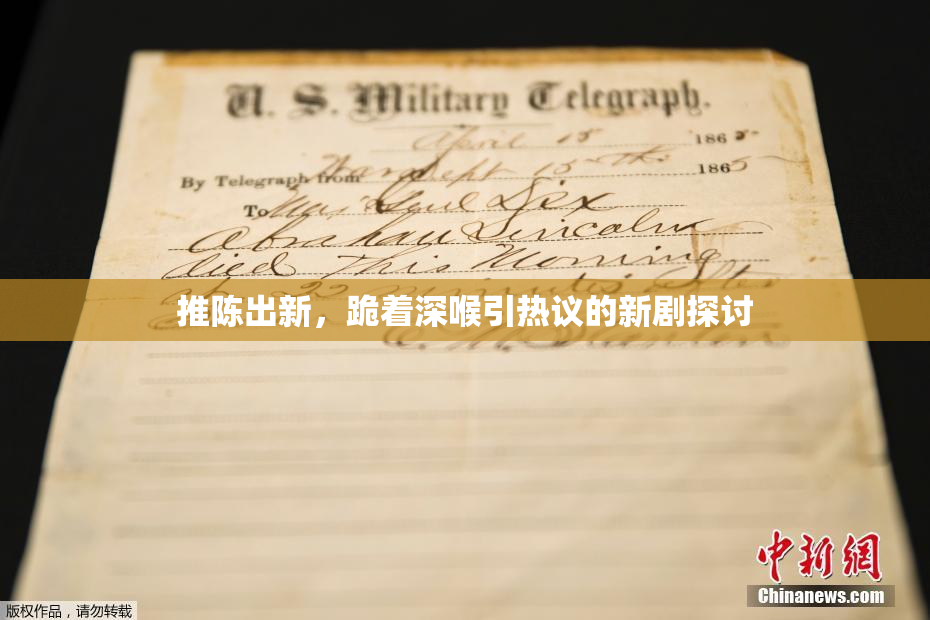 U. S. Military Telegraph.
April 15 1865
By Telegraph from War Dept 15th 1865
To Maj Genl Dix
Abraham Lincoln
died This Morning
at 22 minutes after
推陈出新，跪着深喉引热议的新剧探讨
中新網
Chinanews.com
版权作品，请勿转载